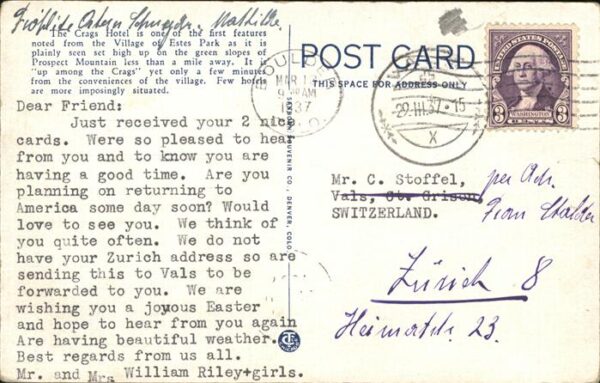 Fröhliche Ostern
The Crags Hotel is one of the first features
noted from the Village of Estes Park as it is
plainly seen set high up on the green slopes of
Prospect Mountain less than a mile away. It is
"up among the Crags" yet only a few minutes
from the conveniences of the village. Few hotels
are more imposingly situated.
Dear Friend:
Just received your 2 nice
cards. Were so pleased to hear
from you and to know you are
having a good time. Are you
planning on returning to
America some day soon? Would
love to see you. We think of
you quite often. We do not
have your Zurich address so are
sending this to Vals to be
forwarded to you. We are
wishing you a joyous Easter
and hope to hear from you again
Are having beautiful weather.
Best regards from us all.
Mr. and Mrs William Riley+girls.
SANBORN SOUVENIR CO., DENVER, COLO.
POST CARD
THIS SPACE FOR ADDRESS ONLY
BOULDER
MAR 1
9 AM
37
COLO.
VALS
29.III.37.15
X
UNITED STATES POSTAGE
3 WASHINGTON 3
CENTS
Mr. C. Stoffel,
Vals, Ct. Grison
SWITZERLAND.
per Adr.
Frau
Zürich 8
23.
CT